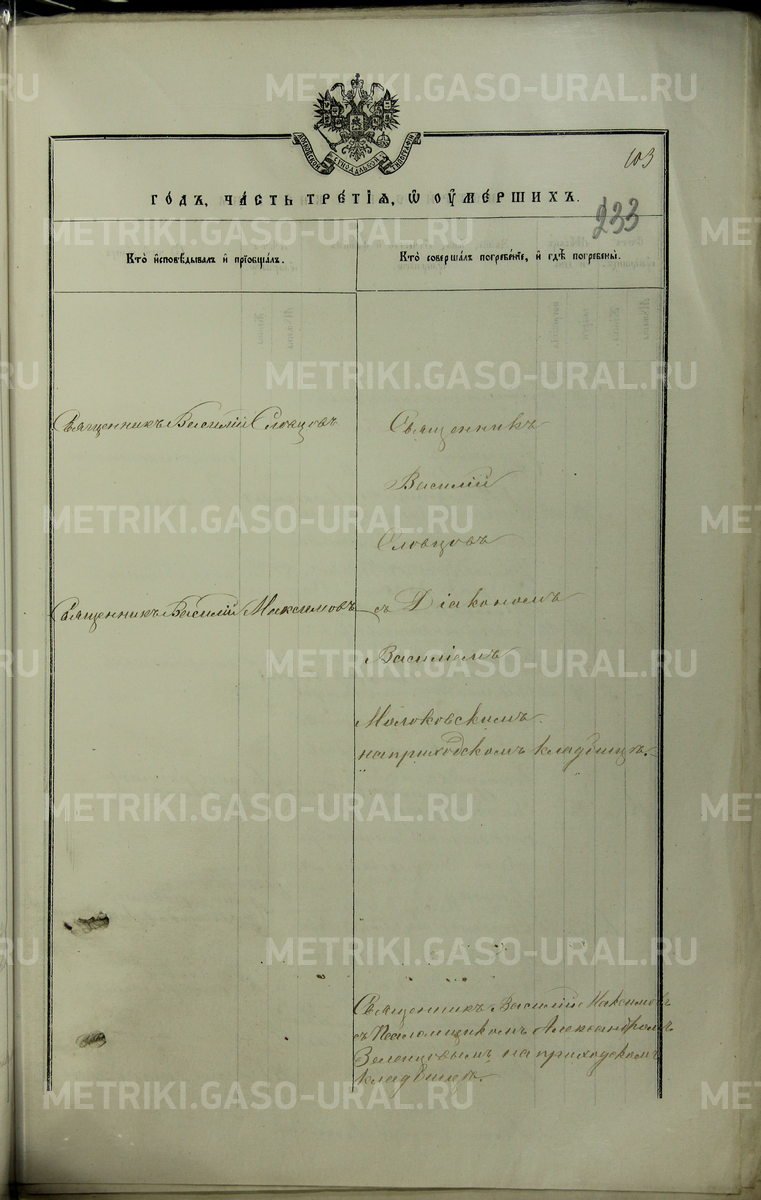 METRIKI.GASO-URAL.RU
МОСКОВСКОЙ СѴНОДАЛЬНОЙ ТИПОГРАФІИ
103
ГО́ДЪ, ЧА́СТЬ ТРЕ́ТІѦ, Ѡ ОУ҆МЕ́РШИХЪ.
233
Кто̀ и҆сповѣ́дывалъ и҆ прїѡбща́лъ.
Кто̀ соверша́лъ погребе́нїе, и҆ гдѣ̀ погребены̀.
Священникъ Василій Словцовъ
Священникъ
Василій
Словцовъ
Священникъ Василій Максимовъ
съ Діакономъ
Василіемъ
Молоковскимъ
на приходскомъ кладбищѣ.
Священникъ Василій Максимовъ
съ Псаломщикомъ Александромъ
Зеленцовымъ на приходскомъ
кладбищѣ.